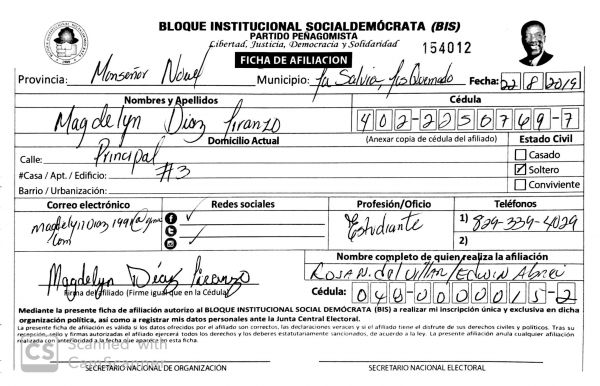 BLOQUE INSTITUCIONAL SOCIALDEMÓCRATA (BIS)
PARTIDO PEÑAGOMISTA
Libertad, Justicia, Democracia y Solidaridad
154012
FICHA DE AFILIACION
Provincia: Monseñor Nouel Municipio: La Salvia Los Quemado Fecha: 22 8 2019
Nombres y Apellidos Cédula
Magdelyn Diaz Piranzo 402-2250769-7
Domicilio Actual (Anexar copia de cédula del afiliado) Estado Civil
Calle: Principal Casado
#Casa / Apt. / Edificio: #3 Soltero
Barrio / Urbanización: Conviviente
Correo electrónico Redes sociales Profesión/Oficio Teléfonos
magdelyn Diaz 199 Estudiante 1) 829-339-4029
com 2)
Nombre completo de quien realiza la afiliación
Magdelyn Díaz Piranzo Rosa N. del Villar/Edwin Abreu
Firma del afiliado (Firme igual que en la Cédula) Cédula: 048-0000015-2
Mediante la presente ficha de afiliación autorizo al BLOQUE INSTITUCIONAL SOCIAL DEMOCRATA (BIS) a realizar mi inscripción única y exclusiva en dicha
organización política, así como a registrar mis datos personales ante la Junta Central Electoral.
La presente ficha de afiliación es válida si los datos ofrecidos por el afiliado son correctos, las declaraciones veraces y si el afiliado tiene el disfrute de sus derechos civiles y políticos. Tras su
recepción, sello y firmas autorizadas el afiliado ejercerá todos los derechos y los deberes estatutariamente sancionados, de acuerdo a la ley. La presente afiliación anula cualquier afiliación
realizada con anterioridad a la fecha que aparece en esta ficha.
CS Scanned with
CamScanner
SECRETARIO NACIONAL DE ORGANIZACIÓN SECRETARIO NACIONAL ELECTORAL